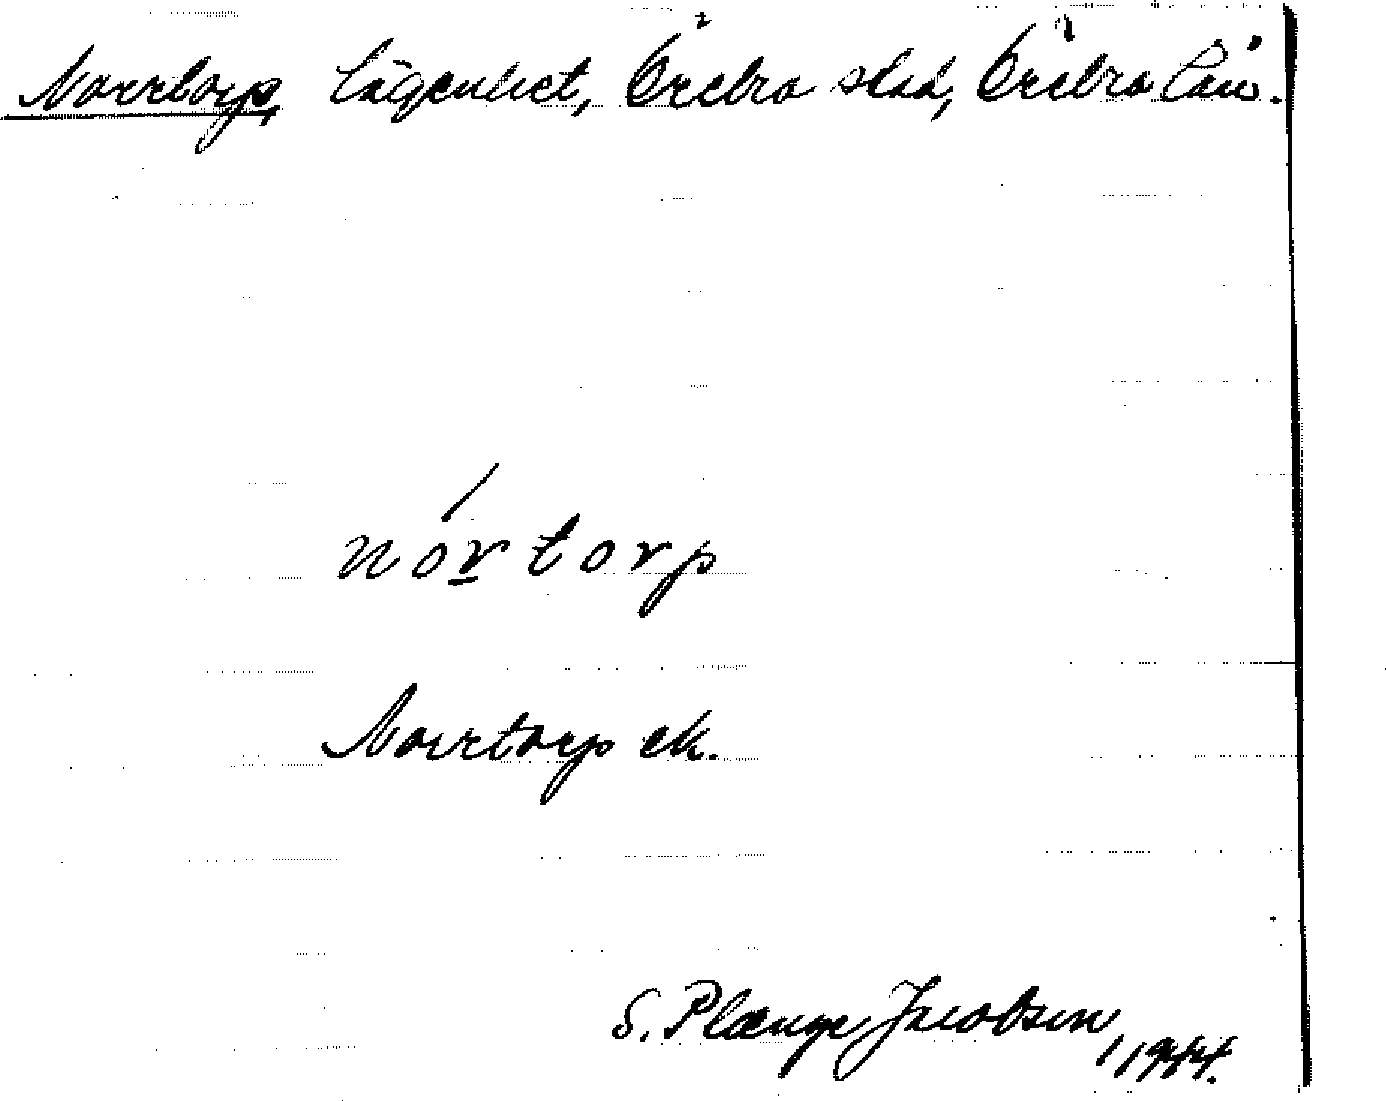 Norrtorp, lägenhet, Örebro stad, Örebro län.
nór̲torp
Norrtorp ek.
S. Plænge Jacobsen, 1944.